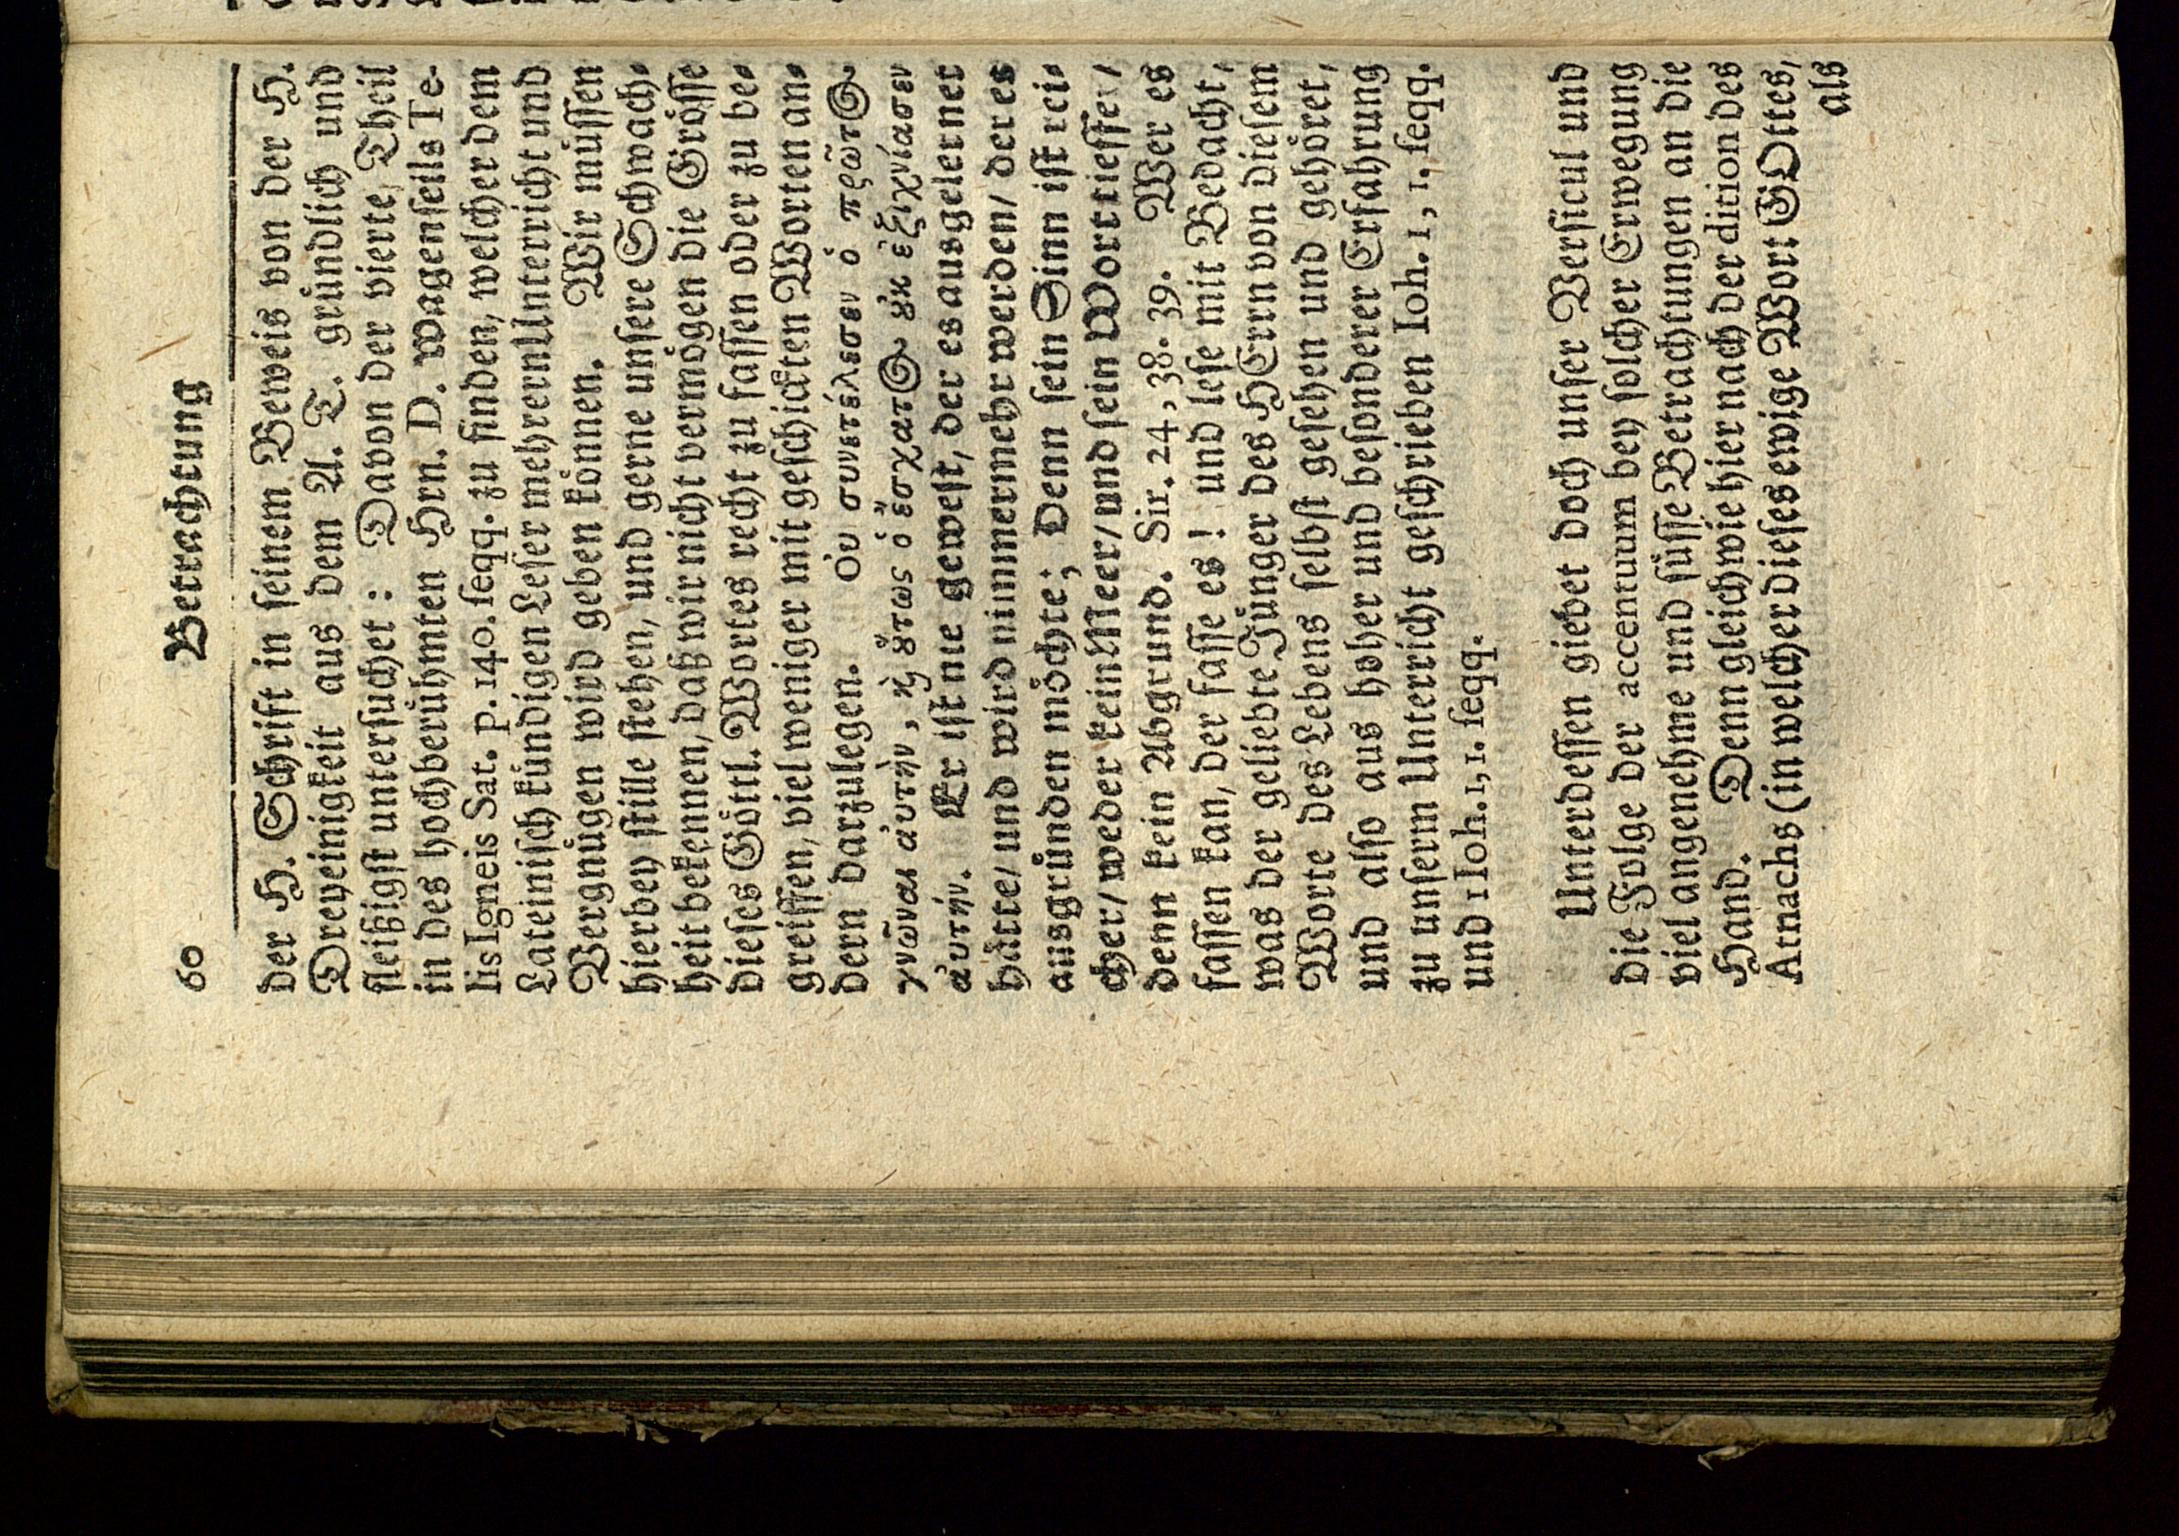 60 Betrachtung
der H. Schrift in seinem Beweis von der H.
Dreyeinigkeit aus dem A. T. gründlich und
fleißigst untersuchet: Davon der vierte Theil
in des hochberühmten Hrn. D. Wagenseils Te-
lis Igneis Sat. p. 140. seqq. zu finden, welcher dem
Lateinisch kündigen Leser mehrern Unterricht und
Vergnügen wird geben können. Wir müssen
hierbey stille stehen, und gerne unsere Schwach-
heit bekennen, daß wir nicht vermögen die Grösse
dieses Göttl. Wortes recht zu fassen oder zu be-
greiffen, viel weniger mit geschickten Worten an-
dern darzulegen. Οὐ συνετέλεσεν ὁ πρῶτ@
γνῶναι αὐτὴν, ϗ̀ ȣ̓́τως ὁ ἔσχατ@ ȣ̓κ ἐξιχνίασεν
αὐτήν. Er ist nie gewest, der es ausgelernet
hätte/ und wird nimmermehr werden/ der es
ausgründen möchte; Denn sein Sinn ist rei-
cher/ weder kein Meer/ und sein Wort tieffer/
denn kein Abgrund. Sir. 24, 38. 39. Wer es
fassen kan, der fasse es! und lese mit Bedacht,
was der geliebte Jünger des HErrn von diesem
Worte des Lebens selbst gesehen und gehöret,
und also aus hoher und besonderer Erfahrung
zu unserm Unterricht geschrieben Ioh. 1, 1. seqq.
und 1 Ioh. 1, 1. seqq.
Unterdessen giebet doch unser Versicul und
die Folge der accentuum bey solcher Erwegung
viel angenehme und süsse Betrachtungen an die
Hand. Denn gleichwie hier nach der dition des
Atnachs (in welcher dieses ewige Wort GOttes,
als